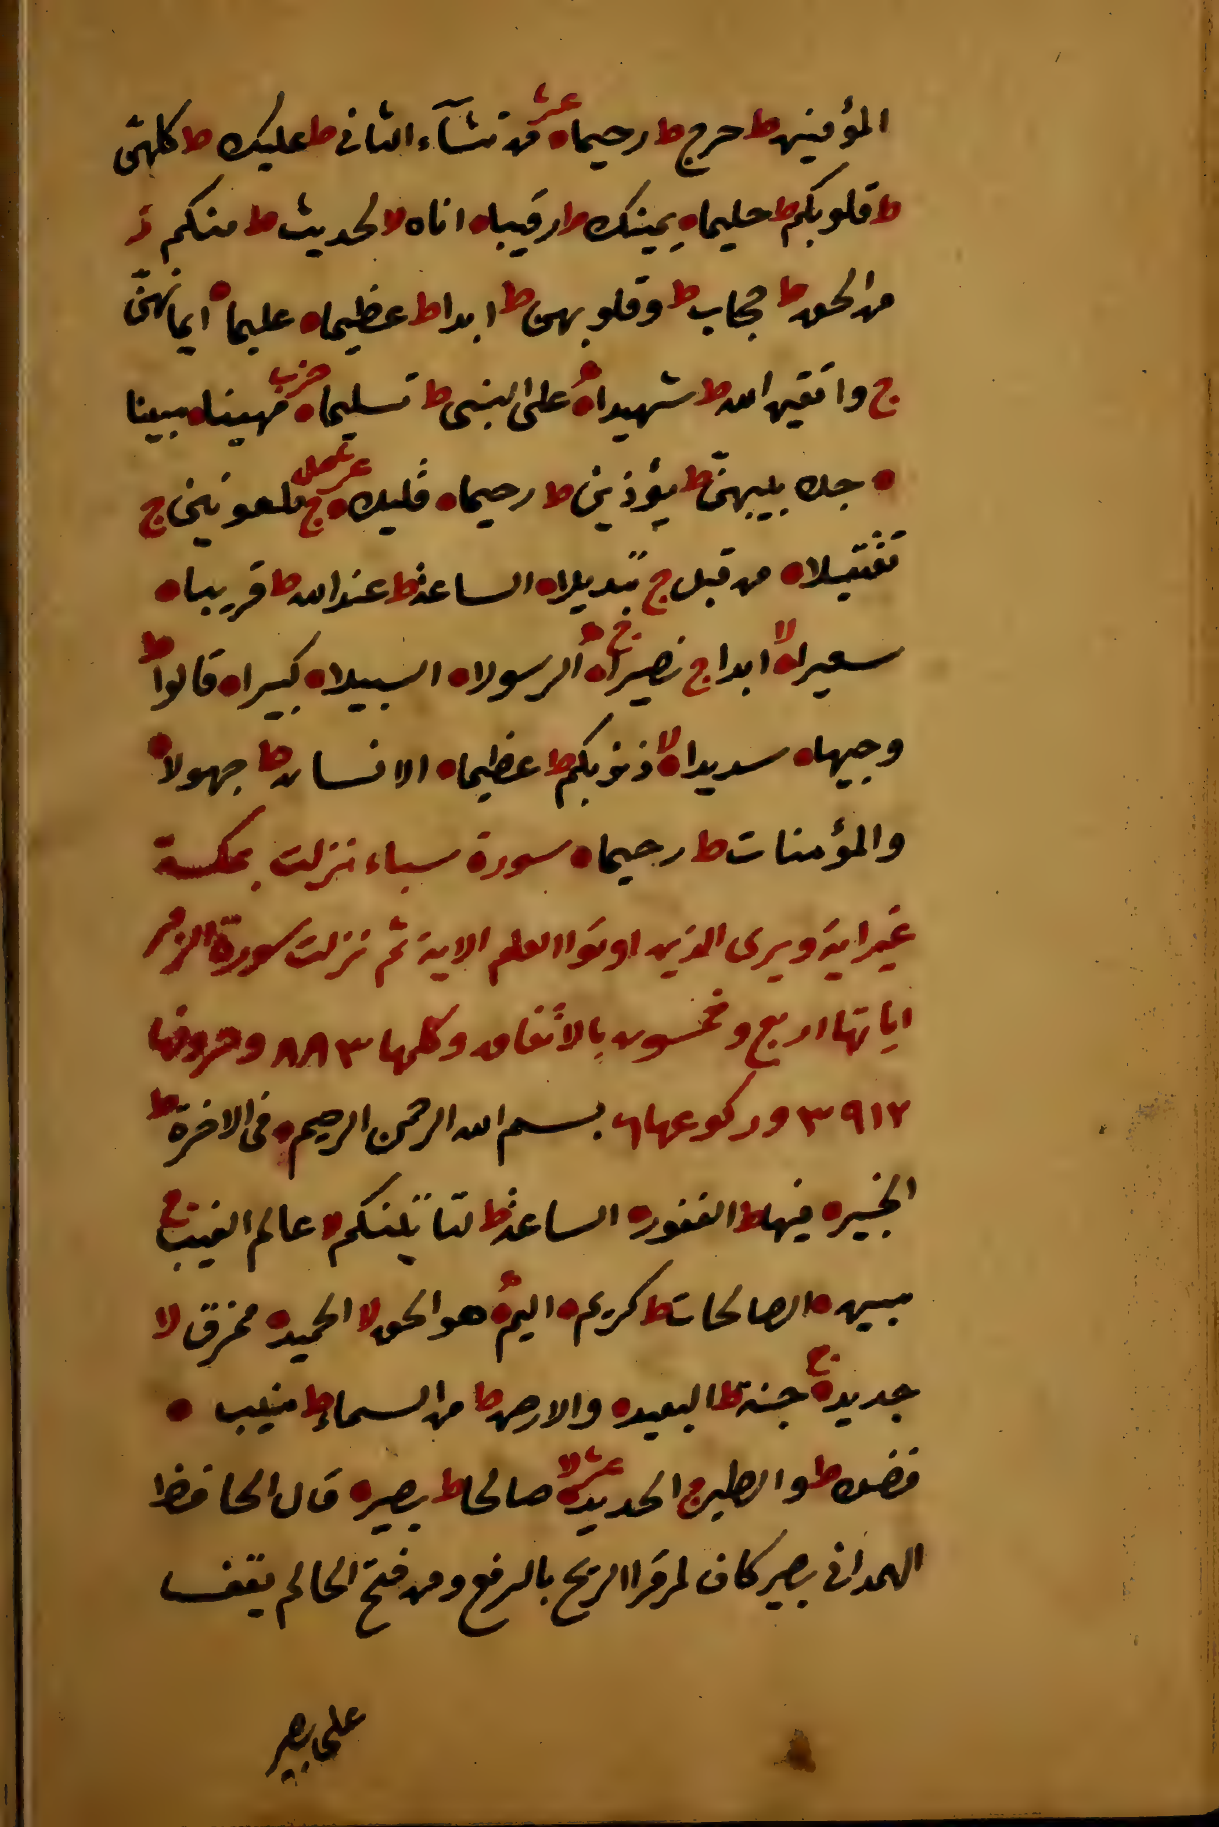 المؤمنين ط حرج ط رحيما ه عشر من تشآء الثانى ط عليك ط كلهنّ
ط قلوبكم ط حليما ه يمينك ط رقيبا ه اناه لا لحديث ط منكم ز
من الحق ط حجاب ط وقلوبهن ط ابدا ط عظيما ه عليما ه ايمانهنّ
ج واتقين الله ط شهيدا ه على النبى ط تسليما ه حزب مهينا ه مبينا
ه جلابيبهنّ ط يؤذين ط رحيما ه قليلا ه ج عشر ملعونين ج
تقتيلا ه من قبل ج تبديلا ه الساعة ط عند الله ط قريبا ه
سعيرا ه لا ابدا ج نصيرا ه ج الرسولا ه السبيلا ه كبيرا ه قالوا ط
وجيها ه سديدا ه لا ذنوبكم ط عظيما ه الانسان ط جهولا ه
والمؤمنات ط رحيما ه سورة سباء نزلت بمكة
غير اية ويرى الذين اوتوا العلم الاية ثم نزلت سورة الزمر
اياتها اربع وخمسون بالاتفاق وكلمها ٨٨٣ وحروفها
٣٩١٢ وركوعها ٦ بسم الله الرحمن الرحيم ه فى الاخرة ط
الخبير ه فيها ط الغفور ه الساعة ط لتاتينكم لا عالم الغيب ج
مبين ه الصالحات ط كريم ه اليم ه هو الحق لا الحميد ه ممزق لا
جديد ه ج جنة ط البعيد ه والارض ط من السماء ط منيب ه
فضلا ط والطير ج الحديد ه لا عشر صالحا ط بصير ه قال الحافظ
الهمدانى بصير كاف لمن قرا الريح بالرفع ومن فتح الحا لم يقف
على بصير